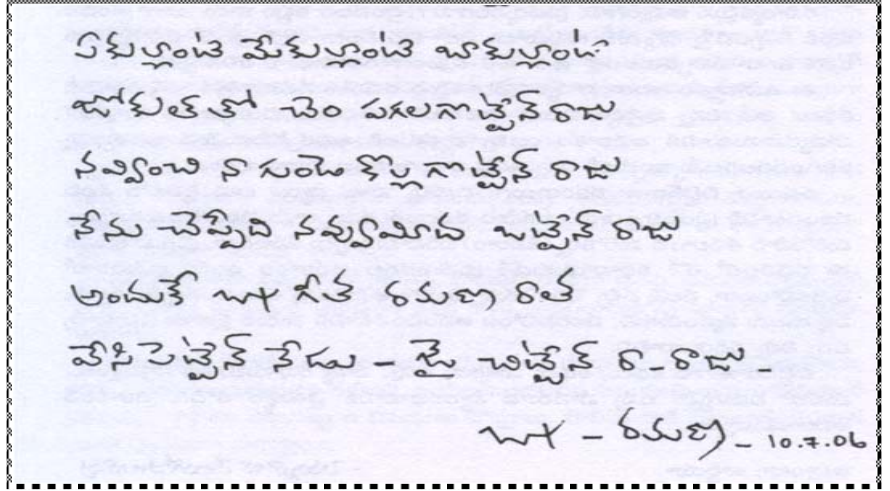 ఏకుళ్లాంటి మేకుళ్లాంటి బాకుళ్లాంటి
జోకుల్‌తో చెం పగలగొట్టేన్ రాజు
నవ్వించి నా గుండె కొల్ల గొట్టేన్ రాజు
నేను చెప్పేది నవ్వుమీద ఒట్టేన్ రాజు
అందుకే బాపు గీత రమణ రాత
వేసిపెట్టేన్ నేడు – జై చిట్టేన్ రా-రాజు –
బాపు – రమణ – 10.7.06